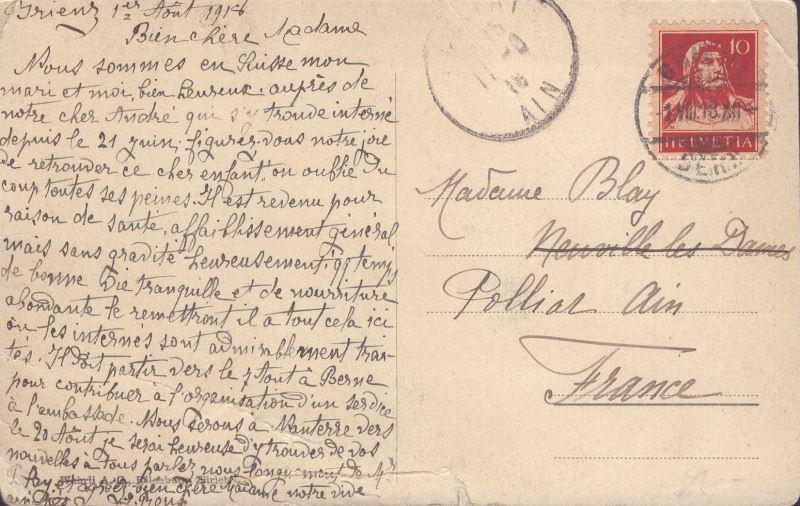 Brienz 1er Août 1916
Bien chère Madame
Nous sommes en Suisse mon
mari et moi, bien heureux auprès de
notre cher André qui s'y trouve interné
depuis le 21 juin; figurez-vous notre joie
de retrouver ce cher enfant, on oublie du
coup toutes ses peines. Il est revenu pour
raison de santé, affaiblissement général
mais sans gravité heureusement; qq temps
de bonne vie tranquille et de nourriture
abondante le remettront il a tout cela ici
où les internés sont admirablement trai-
tés. Il doit partir vers le 7 Août à Berne
pour contribuer à l'organisation d'un service
à l'ambassade. Nous serons à Nanterre vers
le 20 Août je serai heureuse d'y trouver de vos
nouvelles à tous parlez nous longuement de Mr
Blay et agréez bien chère Madame notre vive
AIN
16
10
HELVETIA
Madame Blay
Neuville les Dames
Polliat Ain
France